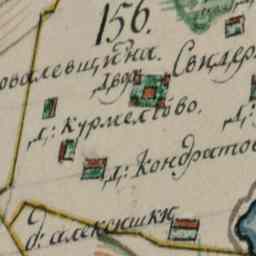 156.
овалевщина.
Двор
Свидер
д: курмелево.
д: Кондратов
д: алексюшки